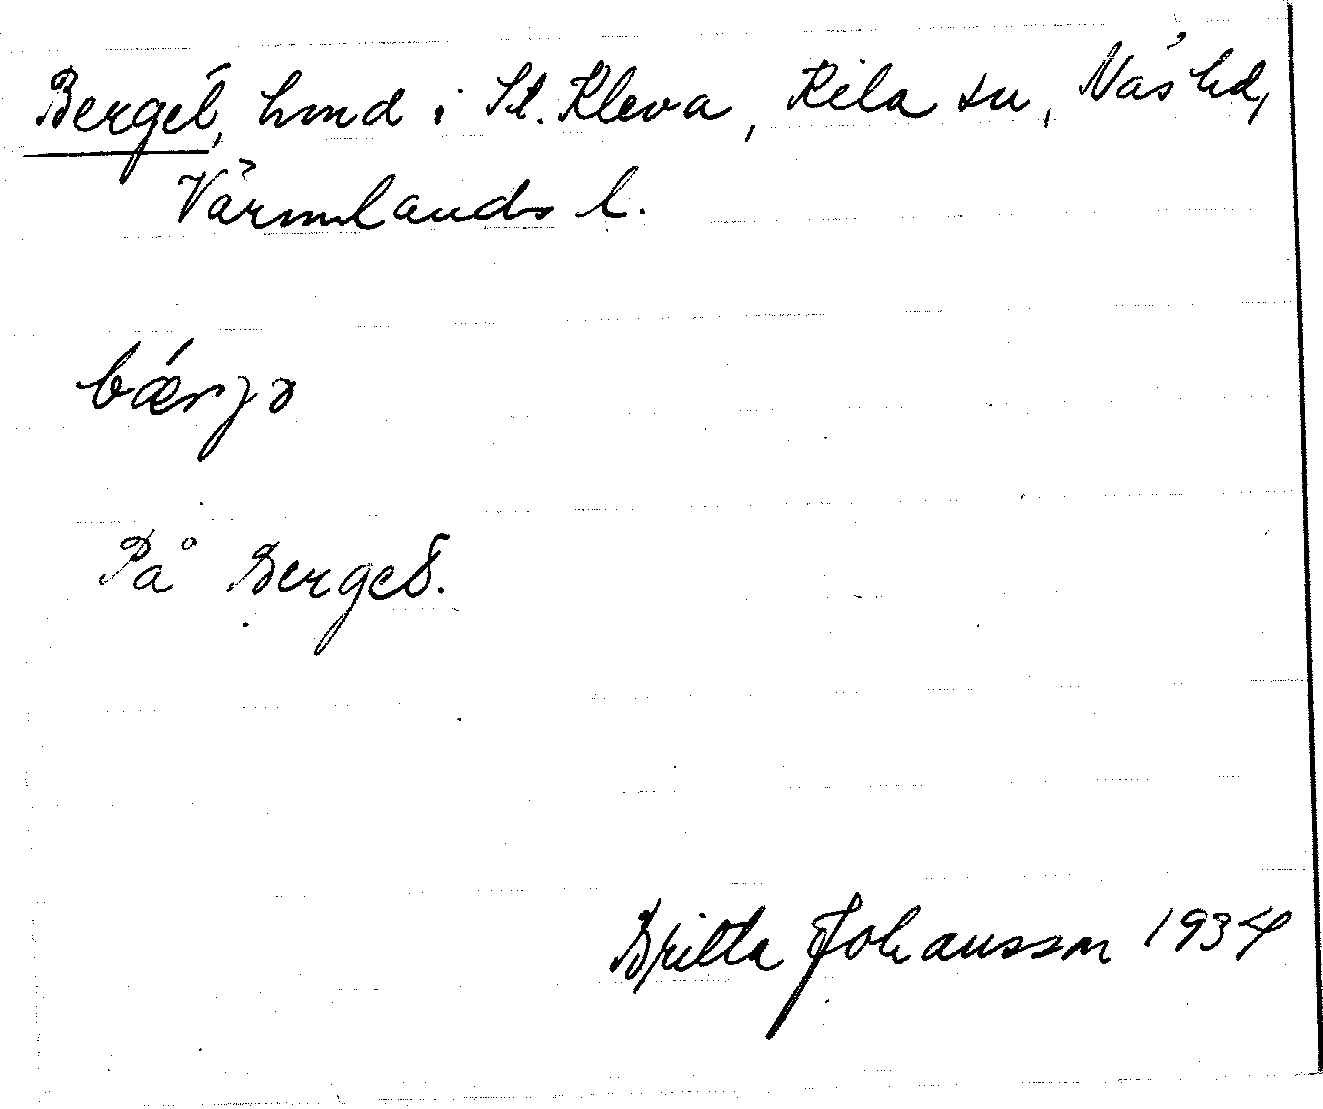 Berget, hmd i St. Kleva, Kila sn, Näs hd,
Värmlands l.
bǽrjə
På Berget.
Britta Johansson 1934